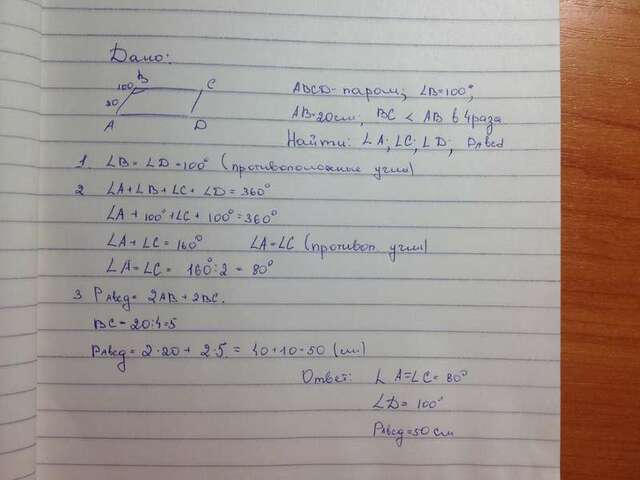 Дано:
B
100°
C
20
A
D
ABCD - парал; ∠B=100°;
AB=20см, BC < AB в 4 раза
Найти: ∠A; ∠C; ∠D; Pавсд
1. ∠B = ∠D = 100° (противоположные углы)
2 ∠A+∠B+∠C+∠D = 360°
∠A + 100°+∠C + 100° = 360°
∠A + ∠C = 160° ∠A=∠C (противоп углы)
∠A=∠C = 160°:2 = 80°
3 Pавсд = 2AB + 2BC.
BC = 20:4=5
Pавсд = 2·20 + 2·5 = 40+10=50 (см)
Ответ: ∠A=∠C= 80°
∠D = 100°
Pавсд=50 см